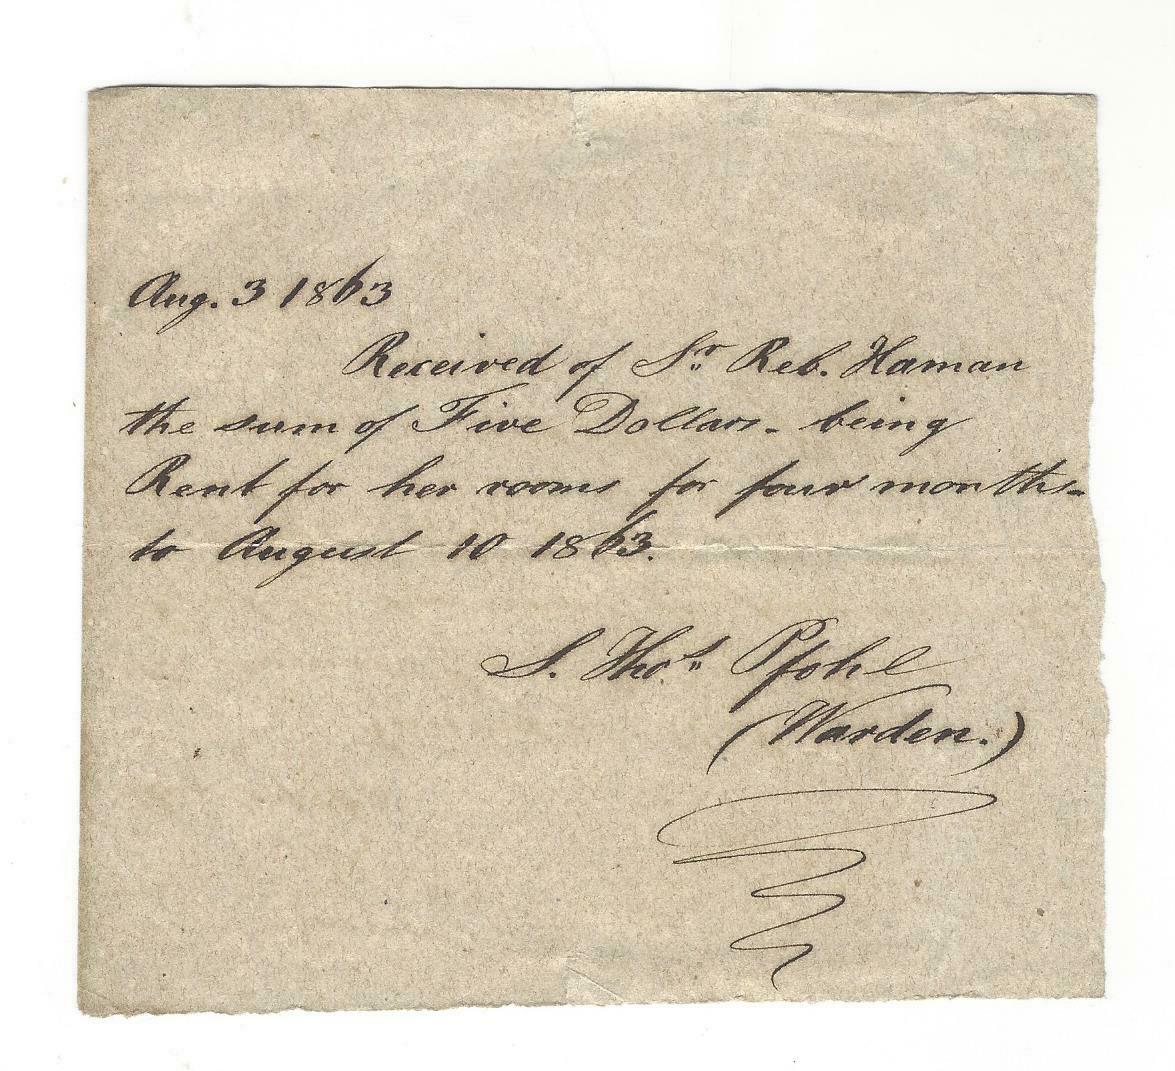 Aug. 3 1863
Received of Sr. Reb. Haman
the sum of Five Dollars. being
Rent for her rooms for four months-
to August 10 1863.
S. Thos. Pfohl
(Warden.)